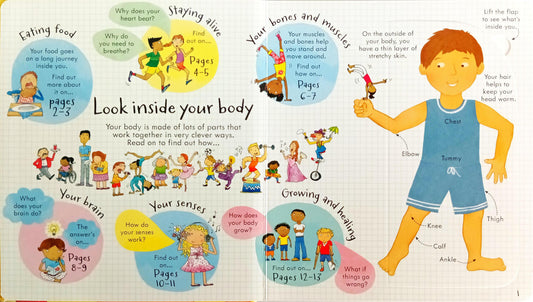 Eating food
Your food goes
on a long journey
inside you.
Find out
more about
it on...
pages
2-3
Why does your
heart beat?
Why do
you need to
breathe?
Staying alive
Find
out on...
Pages
4-5
Your bones and muscles
Your muscles
and bones help
you stand and
move around.
Find out
how on...
Pages
6-7
Look inside your body
Your body is made of lots of parts that
work together in very clever ways.
Read on to find out how...
Your brain
What does
your brain do?
The
answer's
on...
Pages
8-9
Your senses
How do your
senses work?
Find out
on...
Pages
10-11
Growing and healing
How does
your body
grow?
Find out on...
Pages 12-13
What if
things go
wrong?
On the outside of
your body, you
have a thin layer of
stretchy skin.
Lift the flap
to see what's
inside you.
Your hair
helps to
keep your
head warm.
Chest
Elbow
Tummy
Thigh
Knee
Calf
Ankle
1